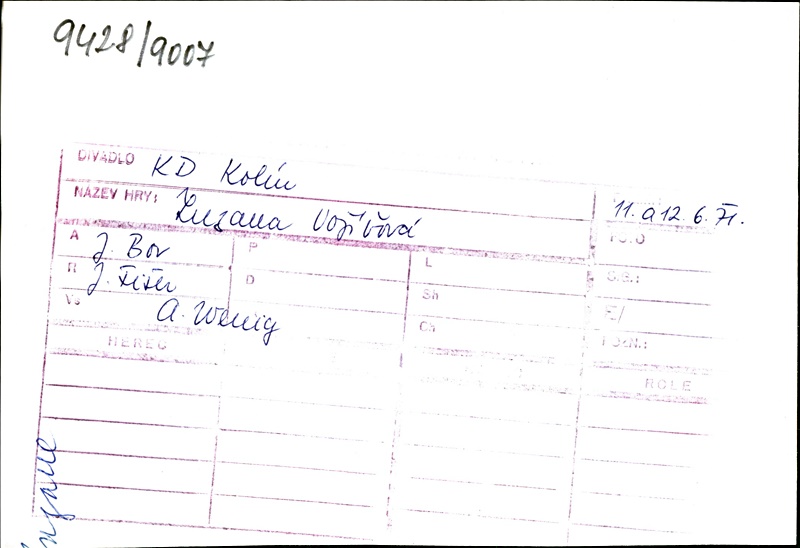 9428/9007
DIVADLO KD Kolín
NÁZEV HRY: Zuzana Vojířová
11. a 12. 6. 71.
A J. Bor P L
R J. Fišer D Sh S.B.:
Vs A. Wenig Ch
HEREC ROLE